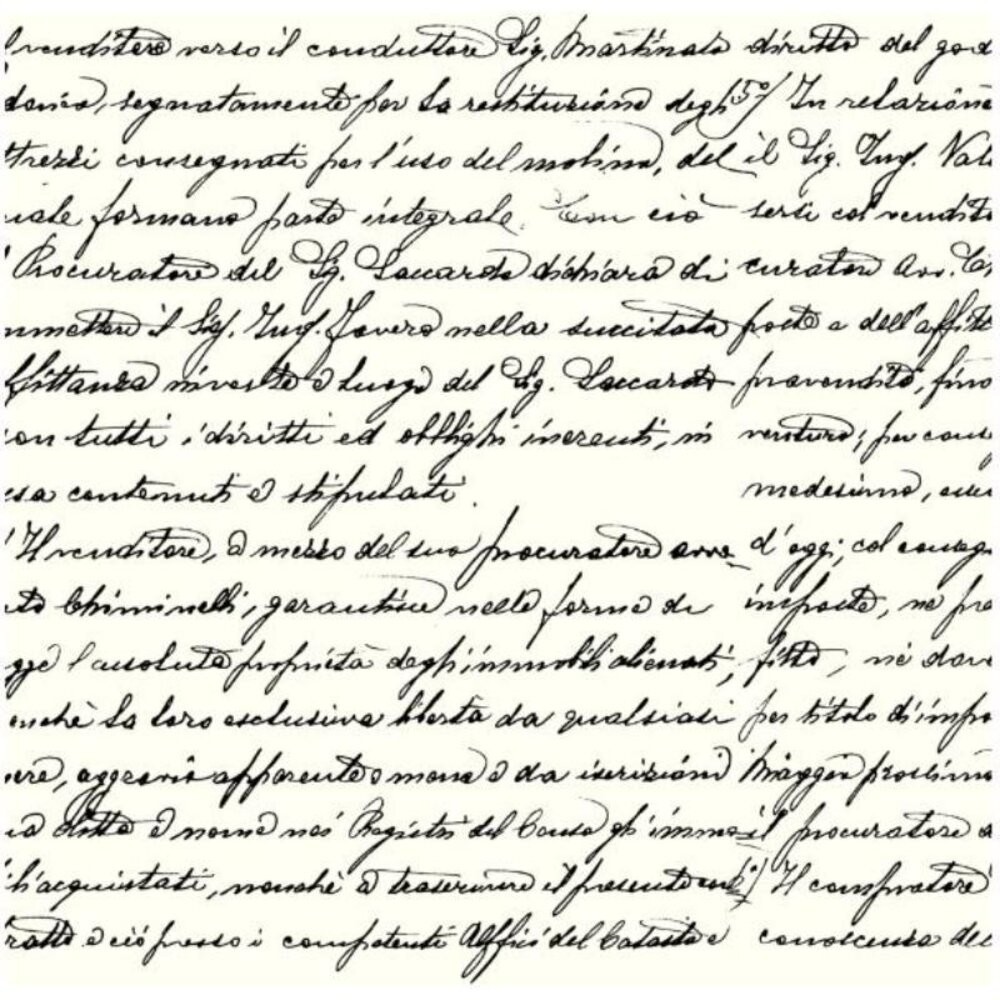 venditore verso il conduttore Sig. Martinato diretto del god
segnatamente per la restituzione degli 5°/ In relazione
trezzi consegnati per l'uso del molino, del il Sig. Ing. Val
iale formano parte integrale. Con ciò sersi col vendito
Procuratore del Sig. Saccardo dichiara di curatore Avv. C
mmettere il Sig. Ing. Favero nella succitata parte e dell'affitt
fittanza investito e luogo del Sig. Saccardo provenditò, fino
on tutti i diritti ed obblighi inerenti, in venturo; per cons
sa contenuti e stipulati. medesimo,
Il venditore, a mezzo del suo procuratore avvo d'oggi; col conseg
to Chiminelli, garantisce nelle forme di imposte, ne pre
gge l'assoluta proprietà degli immobili alienati, fitto, nè dov
onchè la loro esclusiva libertà da qualsiasi per titolo d'impo
ere, aggravio apparente o meno e da iscrizioni Maggio prossimo
ia ditta e nome nei Registri del Censo gli immo il procuratore
li acquistati, nonchè a trascrivere il presente con 6°/ Il compratore
ratto e ciò presso i competenti Uffici del Catasto e conoscenza de